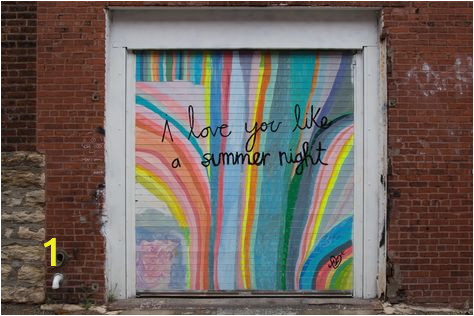 I love you like
a summer night
1